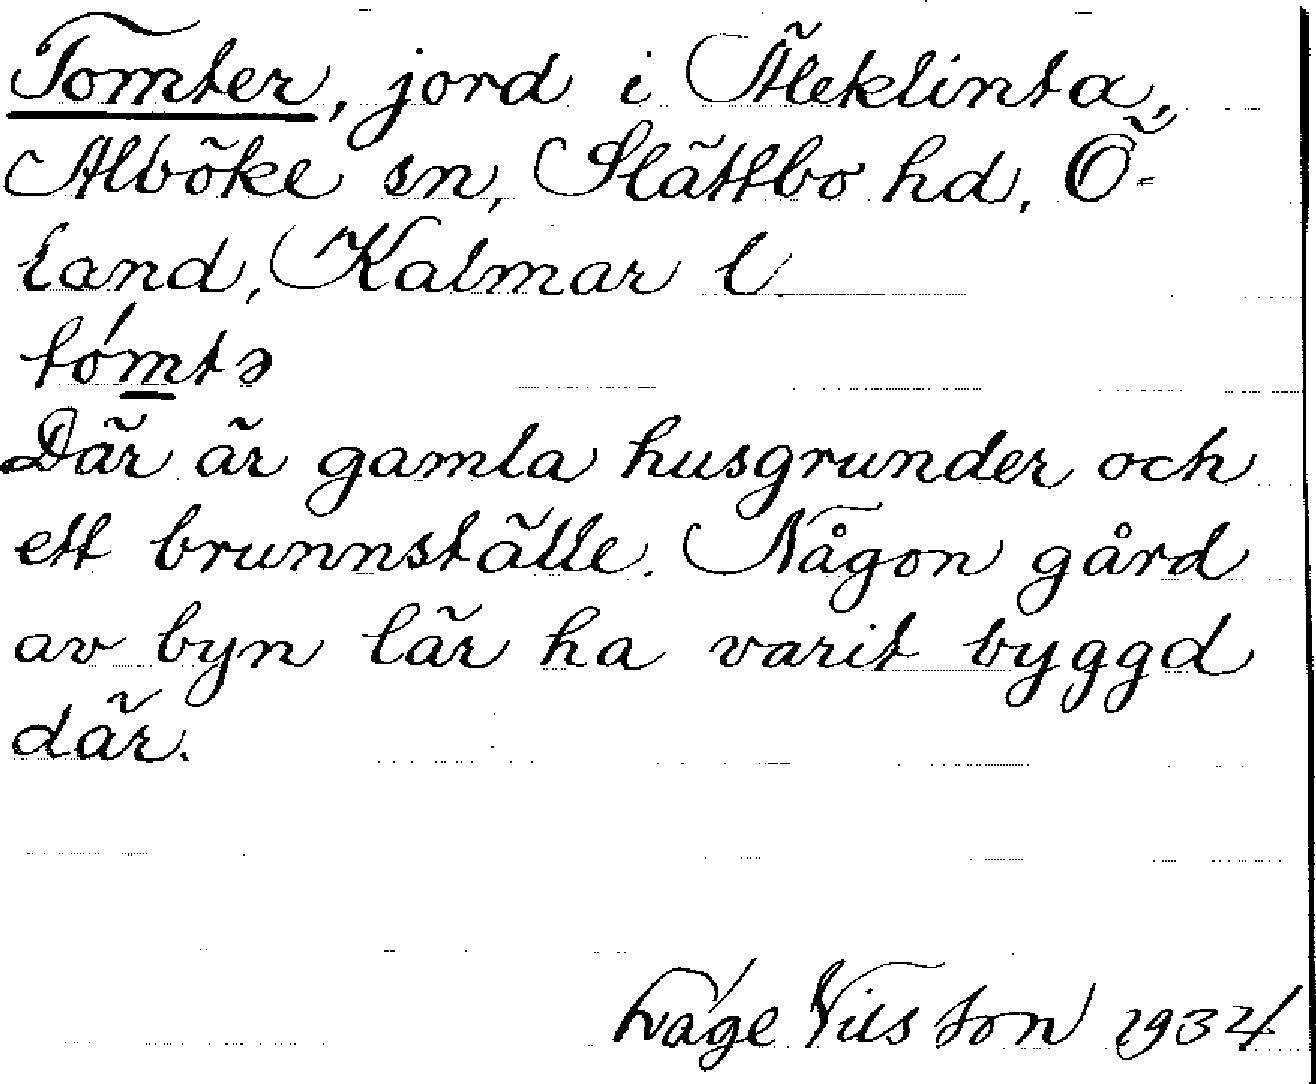 Tomter, jord i Äleklinta,
Alböke sn, Slättbo hd, Ö-
land, Kalmar l
tómtə
Där är gamla husgrunder och
ett brunnställe. Någon gård
av byn lär ha varit byggd
där.
Nilsson 1934